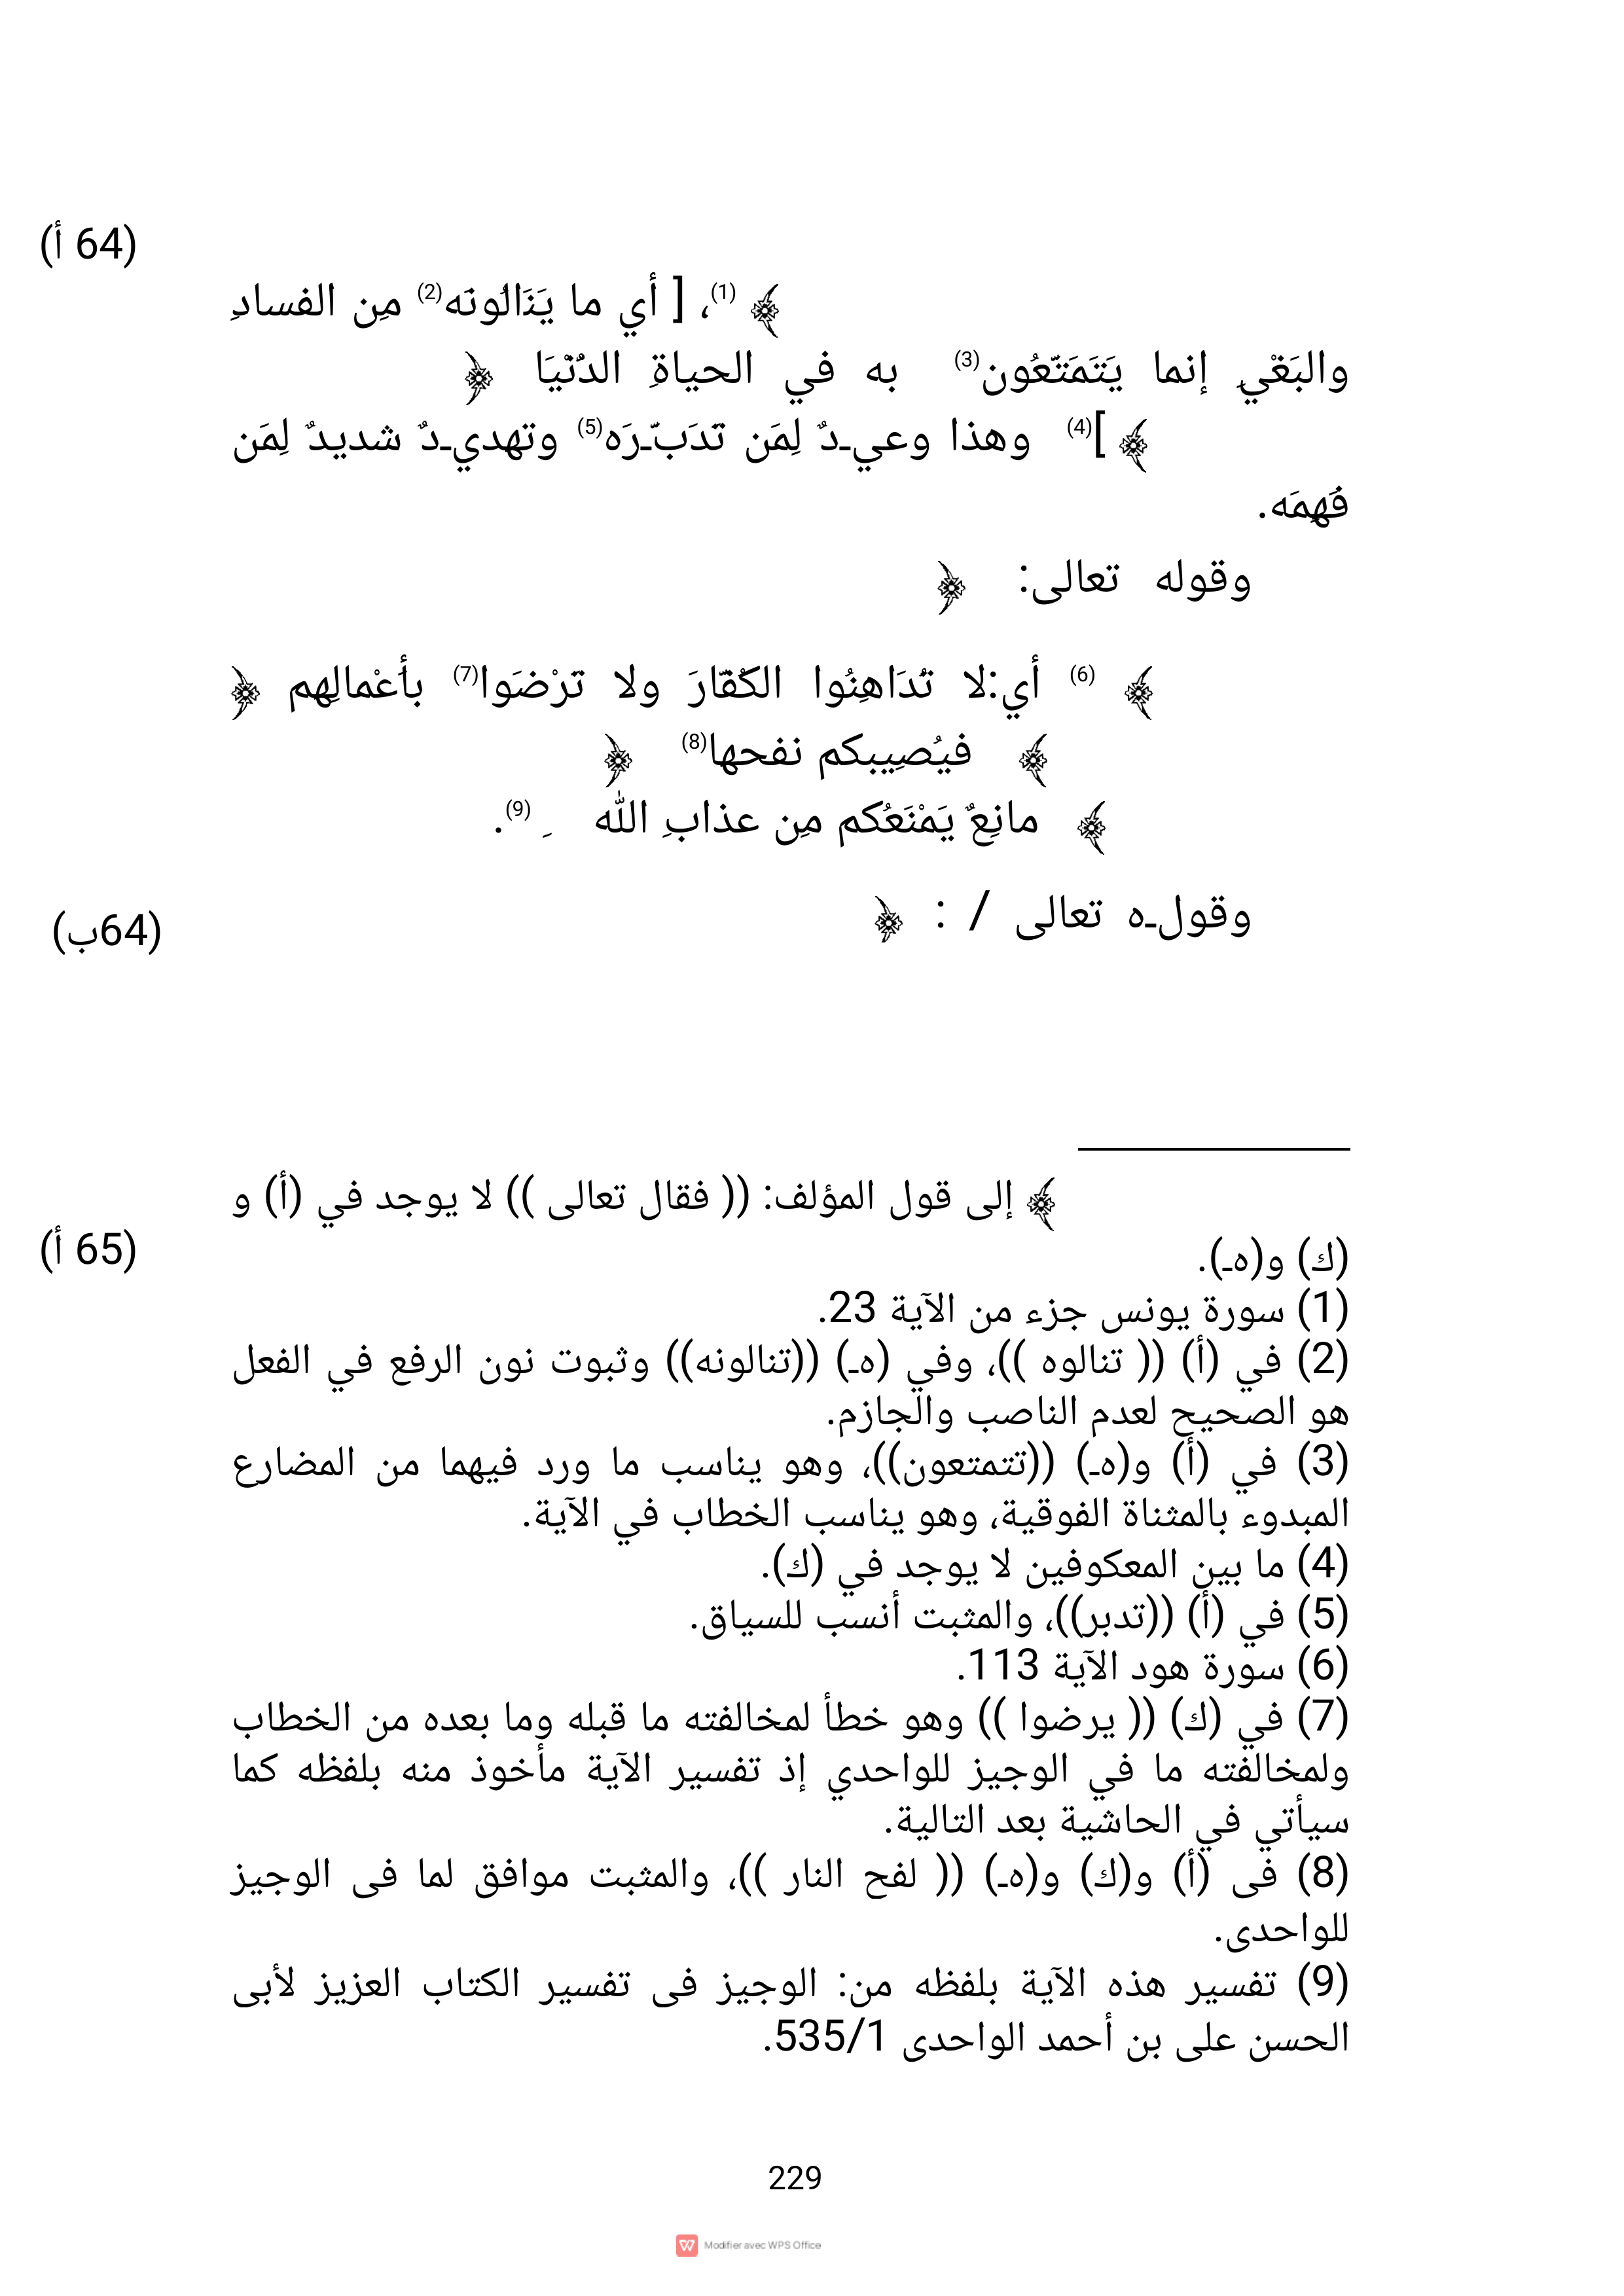 (64 أ)
﴾ (1)، [ أي ما يَنَالُونَه(2) مِن الفسادِ
والبَغْيِ إنما يَتَمَتَّعُون(3) به في الحياةِ الدُنْيَا ﴿
﴾ ](4) وهذا وعيـدٌ لِمَن تَدَبّـرَه(5) وتهديـدٌ شديدٌ لِمَن
فَهِمَه.
وقوله تعالى: ﴿
﴾ (6) أي:لا تُدَاهِنُوا الكُفّارَ ولا تَرْضَوا(7) بأَعْمالِهم ﴿
﴾ فيُصِيبكم نفحها(8) ﴿
﴾ مانِعٌ يَمْنَعُكم مِن عذابِ الله َ (9).
وقولـه تعالى / : ﴿
(64ب)
﴾ إلى قول المؤلف: (( فقال تعالى )) لا يوجد في (أ) و
(ك) و(هـ).
(65 أ)
(1) سورة يونس جزء من الآية 23.
(2) في (أ) (( تنالوه ))، وفي (هـ) ((تنالونه)) وثبوت نون الرفع في الفعل
هو الصحيح لعدم الناصب والجازم.
(3) في (أ) و(هـ) ((تتمتعون))، وهو يناسب ما ورد فيهما من المضارع
المبدوء بالمثناة الفوقية، وهو يناسب الخطاب في الآية.
(4) ما بين المعكوفين لا يوجد في (ك).
(5) في (أ) ((تدبر))، والمثبت أنسب للسياق.
(6) سورة هود الآية 113.
(7) في (ك) (( يرضوا )) وهو خطأ لمخالفته ما قبله وما بعده من الخطاب
ولمخالفته ما في الوجيز للواحدي إذ تفسير الآية مأخوذ منه بلفظه كما
سيأتي في الحاشية بعد التالية.
(8) فى (أ) و(ك) و(هـ) (( لفح النار ))، والمثبت موافق لما فى الوجيز
للواحدى.
(9) تفسير هذه الآية بلفظه من: الوجيز فى تفسير الكتاب العزيز لأبى
الحسن على بن أحمد الواحدى 535/1.
229
Modifier avec WPS Office